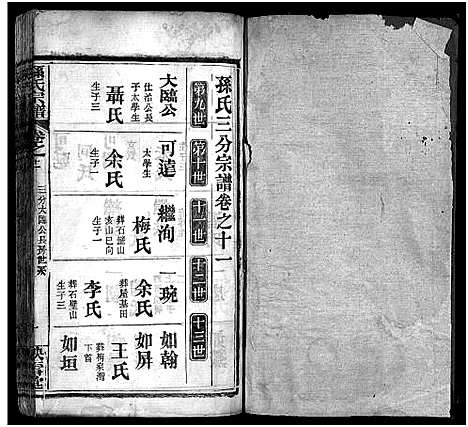 孫氏三分宗譜卷之十一
第九世
第十世
十一世
十二世
十三世
大臨公
仕治公長
子太學生
聶氏
生子三
可遠
大學生
余氏
生子一
繼洵
梅氏
葬石壁山
亥山巳向
生子一
一琬
余氏
葬屋基田
李氏
葬石壁山
生子三
如翰
如屏
王氏
葬梅泉灣
下首
如垣
孫氏宗譜
卷之十一
三分大臨公長孫世系